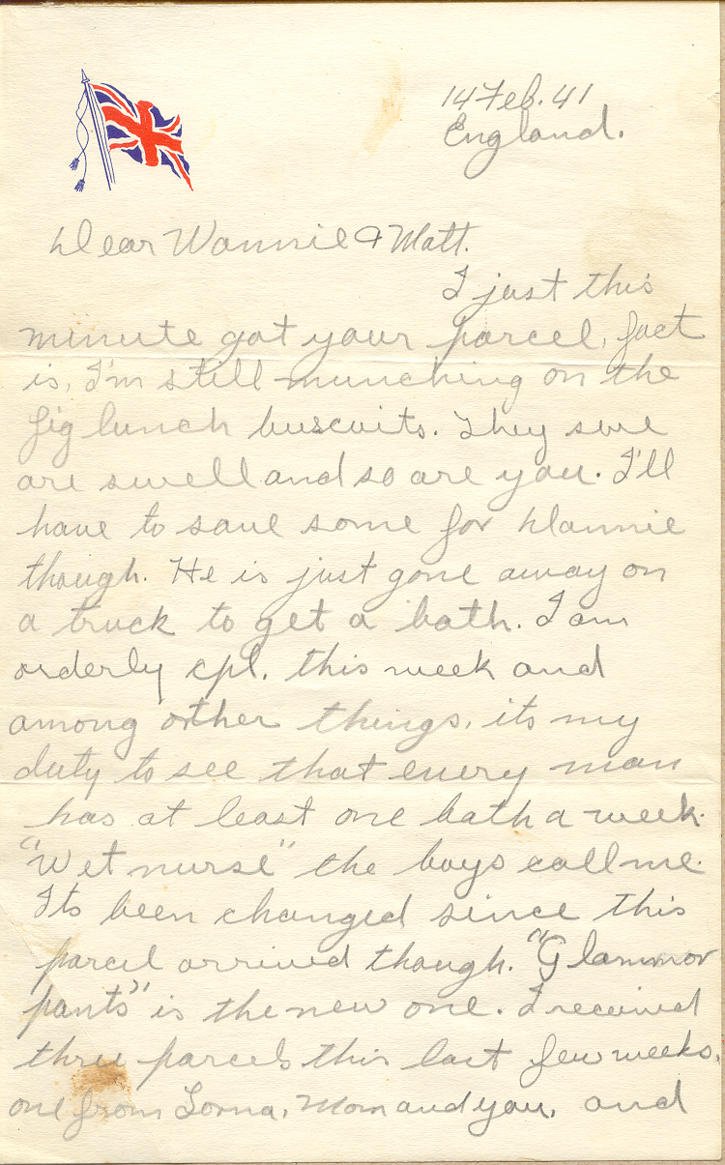 14 Feb. 41
England.
Dear Wannie & Matt.
I just this
minute got your parcel, fact
is, I'm still munching on the
fig lunch buscuits. They sure
are swell and so are you. I'll
have to save some for Dannie
though. He is just gone away on
a truck to get a bath. I am
orderly cpl. this week and
among other things, its my
duty to see that every man
has at least one bath a week.
"Wet nurse" the boys call me.
Its been changed since this
parcel arrived though. "Glammor
pants" is the new one. I received
three parcels this last few weeks,
one from Lorna, Mom and you, and